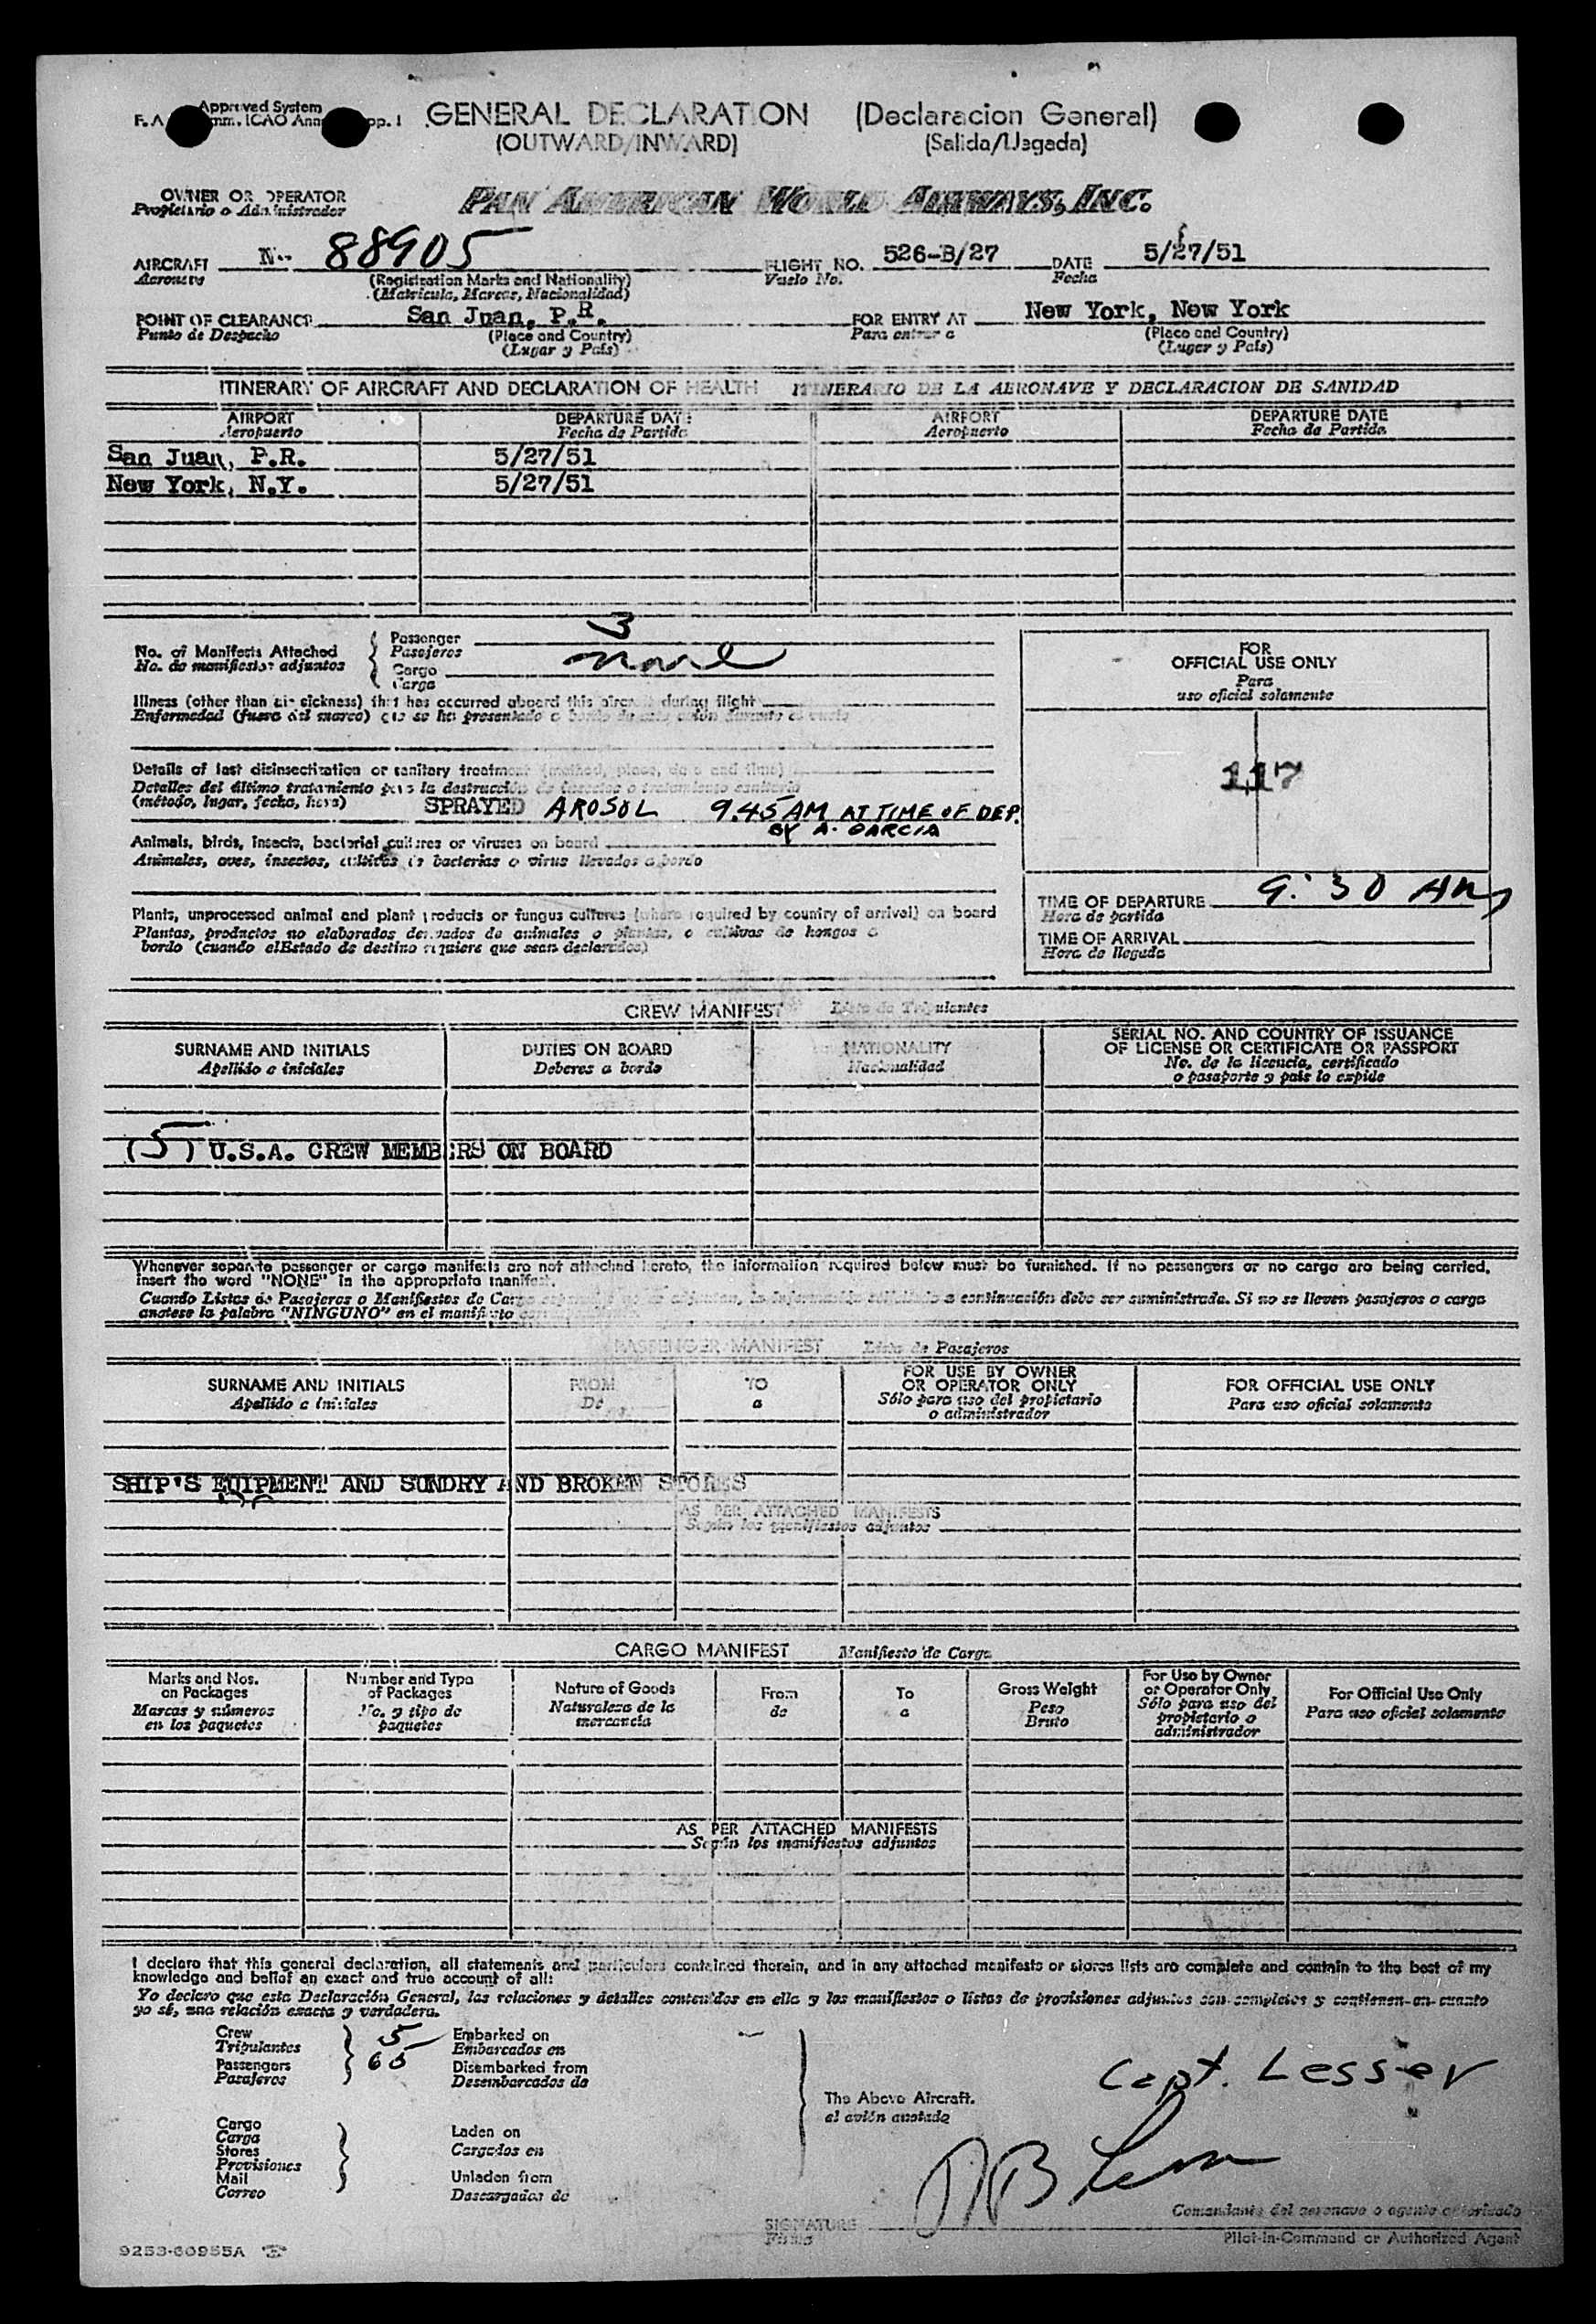 Approved System
GENERAL DECLARATION (Declaracion General)
(OUTWARD/INWARD) (Salida/Llegada)
OWNER OR OPERATOR PAN AMERICAN WORLD AIRWAYS, INC.
Propietario o Administrador
AIRCRAFT N-- 88905 FLIGHT NO. 526-B/27 DATE 5/27/51
Aeronave (Registration Marks and Nationality) Vuelo No. Fecha
(Matricula, Marcas, Nacionalidad)
POINT OF CLEARANCE San Juan, P.R. FOR ENTRY AT New York, New York
Punto de Despacho (Place and Country) Para entrar a (Place and Country)
(Lugar y País) (Lugar y País)
ITINERARY OF AIRCRAFT AND DECLARATION OF HEALTH ITINERARIO DE LA AERONAVE Y DECLARACION DE SANIDAD
AIRPORT DEPARTURE DATE AIRPORT DEPARTURE DATE
Aeropuerto Fecha de Partida Aeropuerto Fecha de Partida
San Juan, P.R. 5/27/51
New York, N.Y. 5/27/51
No. of Manifests Attached Passenger 3
No. de manifiestos adjuntos Pasajeros
Cargo None
Carga
FOR
OFFICIAL USE ONLY
Para
uso oficial solamente
117
Illness (other than air sickness) that has occurred aboard this aircraft during flight
Enfermedad (fuera del mareo) que se ha presentado a bordo de este avión durante el vuelo
Details of last disinsectization or sanitary treatment (method, place, date and time)
Detalles del último tratamiento para la destrucción de insectos o tratamiento sanitario
(método, lugar, fecha, hora) SPRAYED AROSOL 9.45 AM AT TIME OF DEP.
BY A. GARCIA
Animals, birds, insects, bacterial cultures or viruses on board
Animales, aves, insectos, cultivos de bacterias o virus llevados a bordo
Plants, unprocessed animal and plant products or fungus cultures (where required by country of arrival) on board
Plantas, productos no elaborados derivados de animales o plantas, o cultivos de hongos a
bordo (cuando elEstado de destino requiere que sean declarados)
TIME OF DEPARTURE 9:30 AM
Hora de partida
TIME OF ARRIVAL
Hora de llegada
CREW MANIFEST Lista de Tripulantes
SURNAME AND INITIALS DUTIES ON BOARD NATIONALITY SERIAL NO. AND COUNTRY OF ISSUANCE
OF LICENSE OR CERTIFICATE OR PASSPORT
Apellido e iniciales Deberes a bordo Nacionalidad No. de la licencia, certificado
o pasaporte y país lo expide
(5) U.S.A. CREW MEMBERS ON BOARD
Whenever separate passenger or cargo manifests are not attached hereto, the information required below must be furnished. If no passengers or no cargo are being carried,
insert the word "NONE" in the appropriate manifest.
Cuando Listas de Pasajeros o Manifiestos de Carga adjuntan, la a continuación debe ser suministrada. Si no se lleven pasajeros o carga
anotese la palabra "NINGUNO" en el manifiesto
PASSENGER MANIFEST Lista de Pasajeros
SURNAME AND INITIALS FROM TO FOR USE BY OWNER
OR OPERATOR ONLY FOR OFFICIAL USE ONLY
Apellido e iniciales De a Sólo para uso del propietario
o administrador Para uso oficial solamente
SHIP'S EUIPMENT AND SUNDRY AND BROKEN STORES
AS PER ATTACHED MANIFESTS
Según los manifiestos adjuntos
CARGO MANIFEST Manifiesto de Carga
Marks and Nos. on Packages Number and Type of Packages Nature of Goods From To Gross Weight For Use by Owner or Operator Only For Official Use Only
Marcas y números en los paquetes No. y tipo de paquetes Naturaleza de la mercancía de a Peso Bruto Sólo para uso del propietario o administrador Para uso oficial solamente
AS PER ATTACHED MANIFESTS
Según los manifiestos adjuntos
I declare that this general declaration, all statements and particulars contained therein, and in any attached manifests or stores lists are complete and contain to the best of my
knowledge and belief an exact and true account of all:
Yo declaro que esta Declaración General, las relaciones y detalles contenidos en ella y los manifiestos o listas de provisiones adjuntos son completos y contienen en cuanto
yo sé, una relación exacta y verdadera.
Crew 5 Embarked on
Tripulantes Embarcados en
Passengers 65 Disembarked from
Pasajeros Desembarcados de
Capt. Lesser
The Above Aircraft.
el avión anotado
Cargo
Carga Laden on
Stores Cargados en
Provisiones
Mail Unladen from
Correo Descargados de
SIGNATURE
Firma
Comandante del aeronave o agente autorizado
Pilot-in-Command or Authorized Agent
9253-60955A